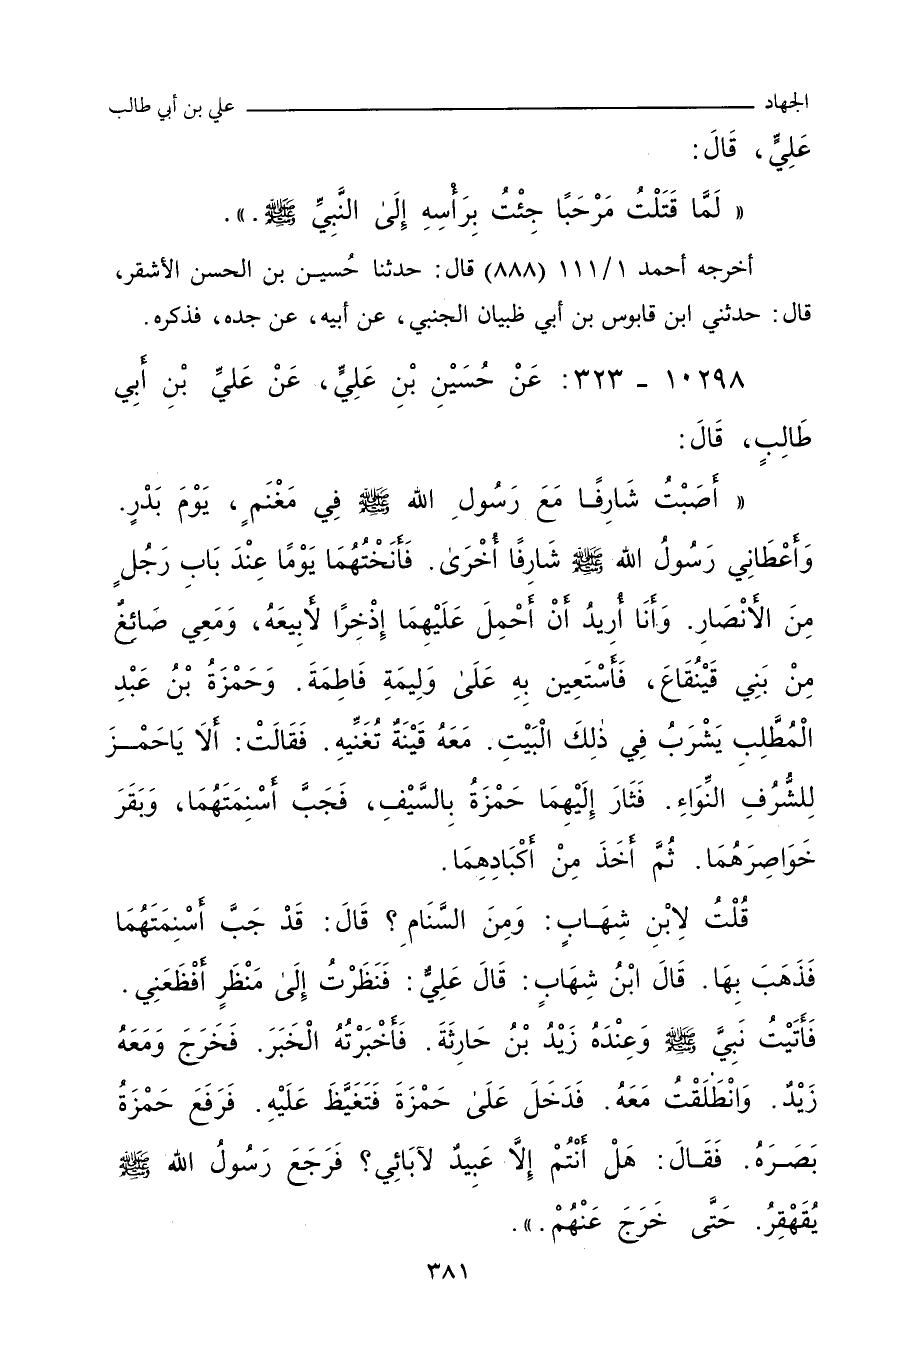 الجهاد علي بن أبي طالب
عَلِيٍّ، قَالَ:
« لَمَّا قَتَلْتُ مَرْحَبًا جِئْتُ بِرَأْسِهِ إِلَىٰ النَّبِيِّ ﷺ.».
أخرجه أحمد ١/ ١١١ (٨٨٨) قال: حدثنا حُسين بن الحسن الأشقر،
قال: حدثني ابن قابوس بن أبي ظبيان الجنبي، عن أبيه، عن جده، فذكره.
١٠٢٩٨ ـ ٣٢٣: عَنْ حُسَيْنِ بْنِ عَلِيٍّ، عَنْ عَلِيِّ بْنِ أَبِي
طَالِبٍ، قَالَ:
« أَصَبْتُ شَارِفًا مَعَ رَسُولِ الله ﷺ فِي مَغْنَمٍ، يَوْمَ بَدْرٍ.
وَأَعْطَانِي رَسُولُ الله ﷺ شَارِفًا أُخْرَىٰ. فَأَنَخْتُهُمَا يَوْمًا عِنْدَ بَابِ رَجُلٍ
مِنَ الأَنْصَارِ. وَأَنَا أُرِيدُ أَنْ أَحْمِلَ عَلَيْهِمَا إِذْخِرًا لأَبِيعَهُ، وَمَعِي صَائِغٌ
مِنْ بَنِي قَيْنُقَاعَ، فَأَسْتَعِين بِهِ عَلَىٰ وَلِيمَةِ فَاطِمَةَ. وَحَمْزَةُ بْنُ عَبْدِ
الْمُطَّلِبِ يَشْرَبُ فِي ذٰلِكَ الْبَيْتِ. مَعَهُ قَيْنَةٌ تُغَنِّيهِ. فَقَالَتْ: أَلَا يَاحَمْزَ
لِلشُّرُفِ النِّوَاءِ. فَثَارَ إِلَيْهِمَا حَمْزَةُ بِالسَّيْفِ، فَجَبَّ أَسْنِمَتَهُمَا، وَبَقَرَ
خَوَاصِرَهُمَا. ثُمَّ أَخَذَ مِنْ أَكْبَادِهِمَا.
قُلْتُ لِابْنِ شِهَابٍ: وَمِنَ السَّنَامِ؟ قَالَ: قَدْ جَبَّ أَسْنِمَتَهُمَا
فَذَهَبَ بِهَا. قَالَ ابْنُ شِهَابٍ: قَالَ عَلِيٌّ: فَنَظَرْتُ إِلَىٰ مَنْظَرٍ أَفْظَعَنِي.
فَأَتَيْتُ نَبِيَّ ﷺ وَعِنْدَهُ زَيْدُ بْنُ حَارِثَةَ. فَأَخْبَرْتُهُ الْخَبَرَ. فَخَرَجَ وَمَعَهُ
زَيْدٌ. وَانْطَلَقْتُ مَعَهُ. فَدَخَلَ عَلَىٰ حَمْزَةَ فَتَغَيَّظَ عَلَيْهِ. فَرَفَعَ حَمْزَةُ
بَصَرَهُ. فَقَالَ: هَلْ أَنْتُمْ إِلَّا عَبِيدٌ لآبَائِي؟ فَرَجَعَ رَسُولُ الله ﷺ
يُقَهْقِرُ. حَتَّى خَرَجَ عَنْهُمْ.».
٣٨١